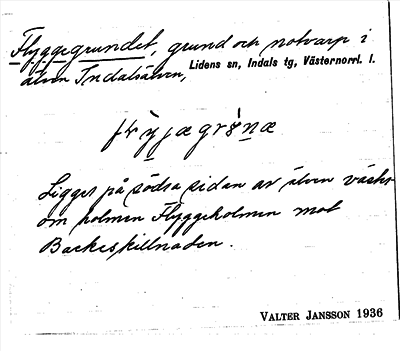 Flyggegrundet, grund och notvarp i
älven Indalsälven, Lidens sn, Indals tg, Västernorrl. l.
Ligger på södra sidan av älven väster
om holmen Flyggeholmen mot
Backeskillnaden.
VALTER JANSSON 1936